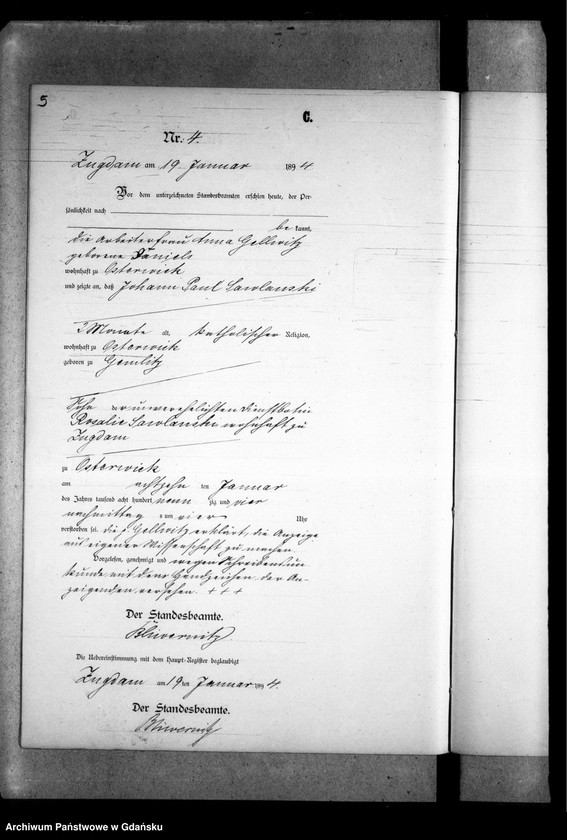 5
C.
Nr. 4.
Zugdam am 19 Januar 1894
Vor dem unterzeichneten Standesbeamten erschien heute, der Per-
sönlichkeit nach
be kannt,
die Arbeiterfrau Anna Gellwitz
geborene Daniels
wohnhaft zu Osterwick
und zeigte an, daß Johann Paul Sawlanski
2 Monate alt, katholischer Religion,
wohnhaft zu Osterwick
geboren zu Gemlitz
Sohn der unverehelichten Dienstbotin
Rosalie Sawlanski wohnhaft zu
Zugdam
zu Osterwick
am achtzehn ten Januar
des Jahres tausend acht hundert neun zig und vier
nachmittag um vier Uhr
verstorben sei. die p. Gellwitz erklärt, die Anzeige
aus eigener Wissenschaft zu machen.
Vorgelesen, genehmigt und wegen Schreibensun
kunde mit dem Handzeichen der An-
zeigenden versehen + + +
Der Standesbeamte.
Die Uebereinstimmung mit dem Haupt-Register beglaubigt
Zugdam am 19 ten Januar 1894.
Der Standesbeamte.
Archiwum Państwowe w Gdańsku